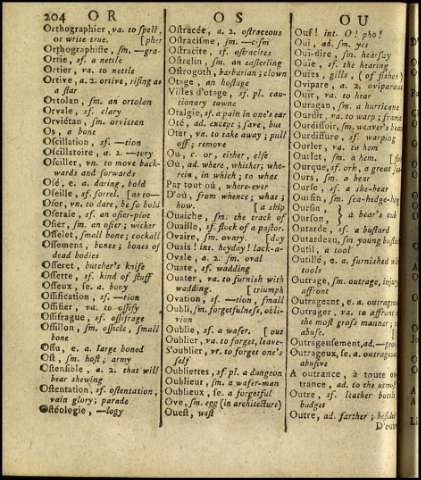 204 OR OS OU
Orthographier, va. to spell,
or write true. [pher
Orthographiste, sm. —gra-
Ortie, sf. a nettle
Ortier, va. to nettle
Ortive, a. 2. ortive, rising as
a star
Ortolan, sm. an ortolan
Orvale, sf. clary
Orviétan, sm. orvietan
Os, a bone
Oscillation, sf. —tion
Oscillatoire, a. 2. —tory
Osciller, vn. to move back-
wards and forwards
Osé, e. a. daring, bold
Oseille, sf. sorrel. [as to—
Oser, vn. to dare, be so bold
Oseraie, sf. an osier-plot
Osier, sm. an osier; wicker
Osselet, small bone; cockall
Ossemens, bones; bones of
dead bodies
Osseret, butcher's knife
Ossette, sf. kind of stuff
Osseux, se. a. bony
Ossification, sf. —tion
Ossifier, va. to ossify
Ossifrague, sf. ossifrage
Ossillon, sm. ossicle, small
bone
Ossu, e. a. large boned
Ost, sm. host; army
Ostensible, a. 2. that will
bear shewing
Ostentation, sf. ostentation,
vain glory; parade
Ostéologie, —logy
Ostracée, a. 2. ostraceous
Ostracisme, sm. —cism
Ostracite, sf. ostracites
Ostrelin, sm. an easterling
Ostrogoth, barbarian; clown
Otage, an hostage
Villes d'otage, sf. pl. cau-
tionary towns
Otalgie, sf. a pain in one's ear
Oté, ad. except; save, but
Oter, va. to take away; pull
off; remove
Ou, c. or, either, else
Où, ad. where, whither; whe-
rein, in which; to what
Par tout où, where-ever
D'où, from whence; what;
how. [a ship
Ouaiche, sm. the track of
Ouaille, sf. flock of a pastor.
Ovaire, sm. ovary. [day
Ouais! int. heyday! lack-a-
Ovale, a. 2. sm. oval
Ouate, sf. wadding
Ouater, va. to furnish with
wadding. [triumph
Ovation, sf. —tion, small
Oubli, sm. forgetfulness, obli-
vion
Oublie, sf. a wafer. [out
Oublier, va. to forget, leave-
S'oublier, vr. to forget one's
self
Oubliettes, sf pl. a dungeon
Oublieur, sm. a wafer-man
Oublieux, se. a. forgetful
Ove, sm. egg (in architecture)
Ouest, west
Ouf! int. O! pho!
Oui, ad. sm. yes
Oui-dire, sm. hearsay
Ouie, sf. the hearing
Ouies, gills, (of fishes)
Ovipare, a. 2. oviparous
Ouïr, va. to hear
Ouragan, sm. a hurricane
Ourdir, va. to warp; fram
Ourdissoir, sm. weaver's bea
Ourdissure, sf. warping
Ourler, va. to hem
Ourlet, sm. a hem.
Ourque, sf. ork, a great
Ours, sm. a bear
Ourse, sf. a she-bear
Oursin, sm. sea-hedge-hog
Ourson, } a bear's cub
Outarde, sf. a bustard
Outardeau, sm young bust
Outil, a tool
Outillé, e. a. furnished wi
tools
Outrage, sm. outrage, injury
affront
Outrageant, e. a. outrageou
Outrager, va. to affront
the most gross manner;
abuse.
Outrageusement, ad.
Outrageux, se. a. outrageou
abusive
A outrance, à toute ou
trance, ad. to the utmost
Outre, sf. leather bott
budget
Outre, ad. farther; besides
D'outr